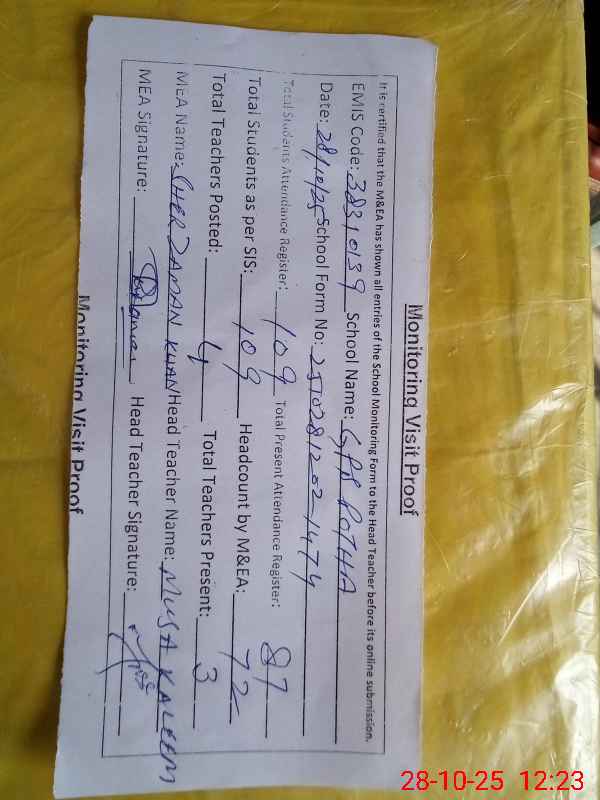 Monitoring Visit Proof
It is certified that the M&EA has shown all entries of the School Monitoring Form to the Head Teacher before its online submission.
EMIS Code: 38310139 School Name: GPS POTHA
Date: 28/10/25 School Form No: 2510281202-1474
Total Students Attendance Register: 109 Total Present Attendance Register: 87
Total Students as per SIS: 109 Headcount by M&EA: 72
Total Teachers Posted: 4 Total Teachers Present: 3
MEA Name: SHER ZAMAN KHAN Head Teacher Name: MUSA KALEEM
MEA Signature: Head Teacher Signature:
Monitoring Visit Proof
28-10-25 12:23